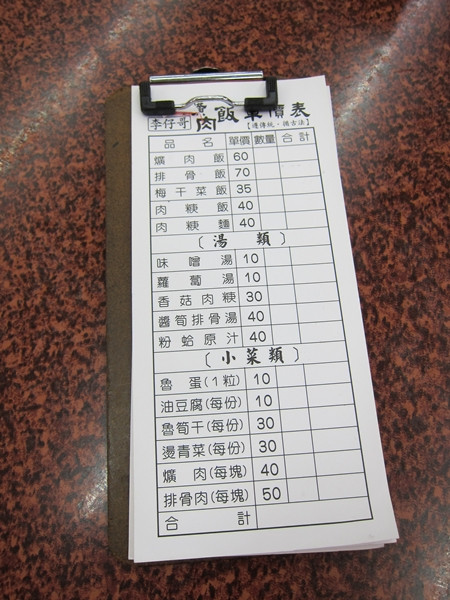 李仔哥 爌肉飯單價表
【遵傳統、循古法】
品名 單價 數量 合計
爌肉飯 60
排骨飯 70
梅干菜飯 35
肉粳飯 40
肉粳麵 40
〔湯類〕
味噌湯 10
蘿蔔湯 10
香菇肉粳 30
醬筍排骨湯 40
粉蛤原汁 40
〔小菜類〕
魯蛋(1粒) 10
油豆腐(每份) 10
魯筍干(每份) 30
燙青菜(每份) 30
爌肉(每塊) 40
排骨肉(每塊) 50
合計